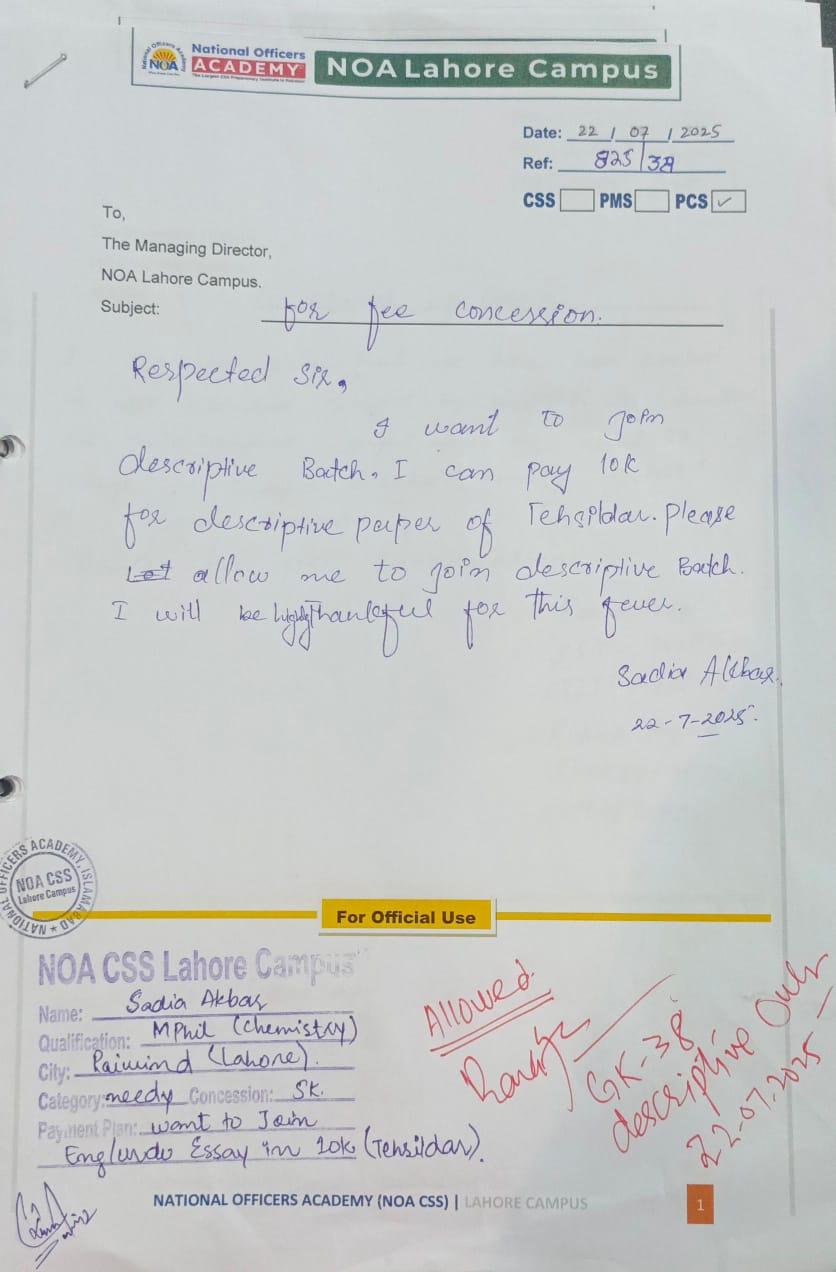 National Officers
NOA ACADEMY
The Largest CSS Preparatory Institute in Pakistan
NOA Lahore Campus
Date: 22 / 07 / 2025
Ref: 825/38
CSS PMS PCS ✓
To,
The Managing Director,
NOA Lahore Campus.
Subject: for fee concession.
Respected Sir,
I want to join
descriptive Batch. I can pay 10k
for descriptive paper of Tehsildar. Please
Let allow me to join descriptive Batch.
I will be highly Thankful for this fever.
Sadia Akbar.
22-7-2025.
NATIONAL OFFICERS ACADEMY, ISLAMABAD
NOA CSS
Lahore Campus
For Official Use
NOA CSS Lahore Campus
Name: Sadia Akbar
Qualification: MPhil (Chemistry)
City: Raiwind (Lahore).
Category: needy Concession: 5k.
Payment Plan: want to Join
Eng/urdu Essay in 10k (Tehsildar).
Allowed
GK-38
descriptive Only
22.07.2025
NATIONAL OFFICERS ACADEMY (NOA CSS) | LAHORE CAMPUS
1